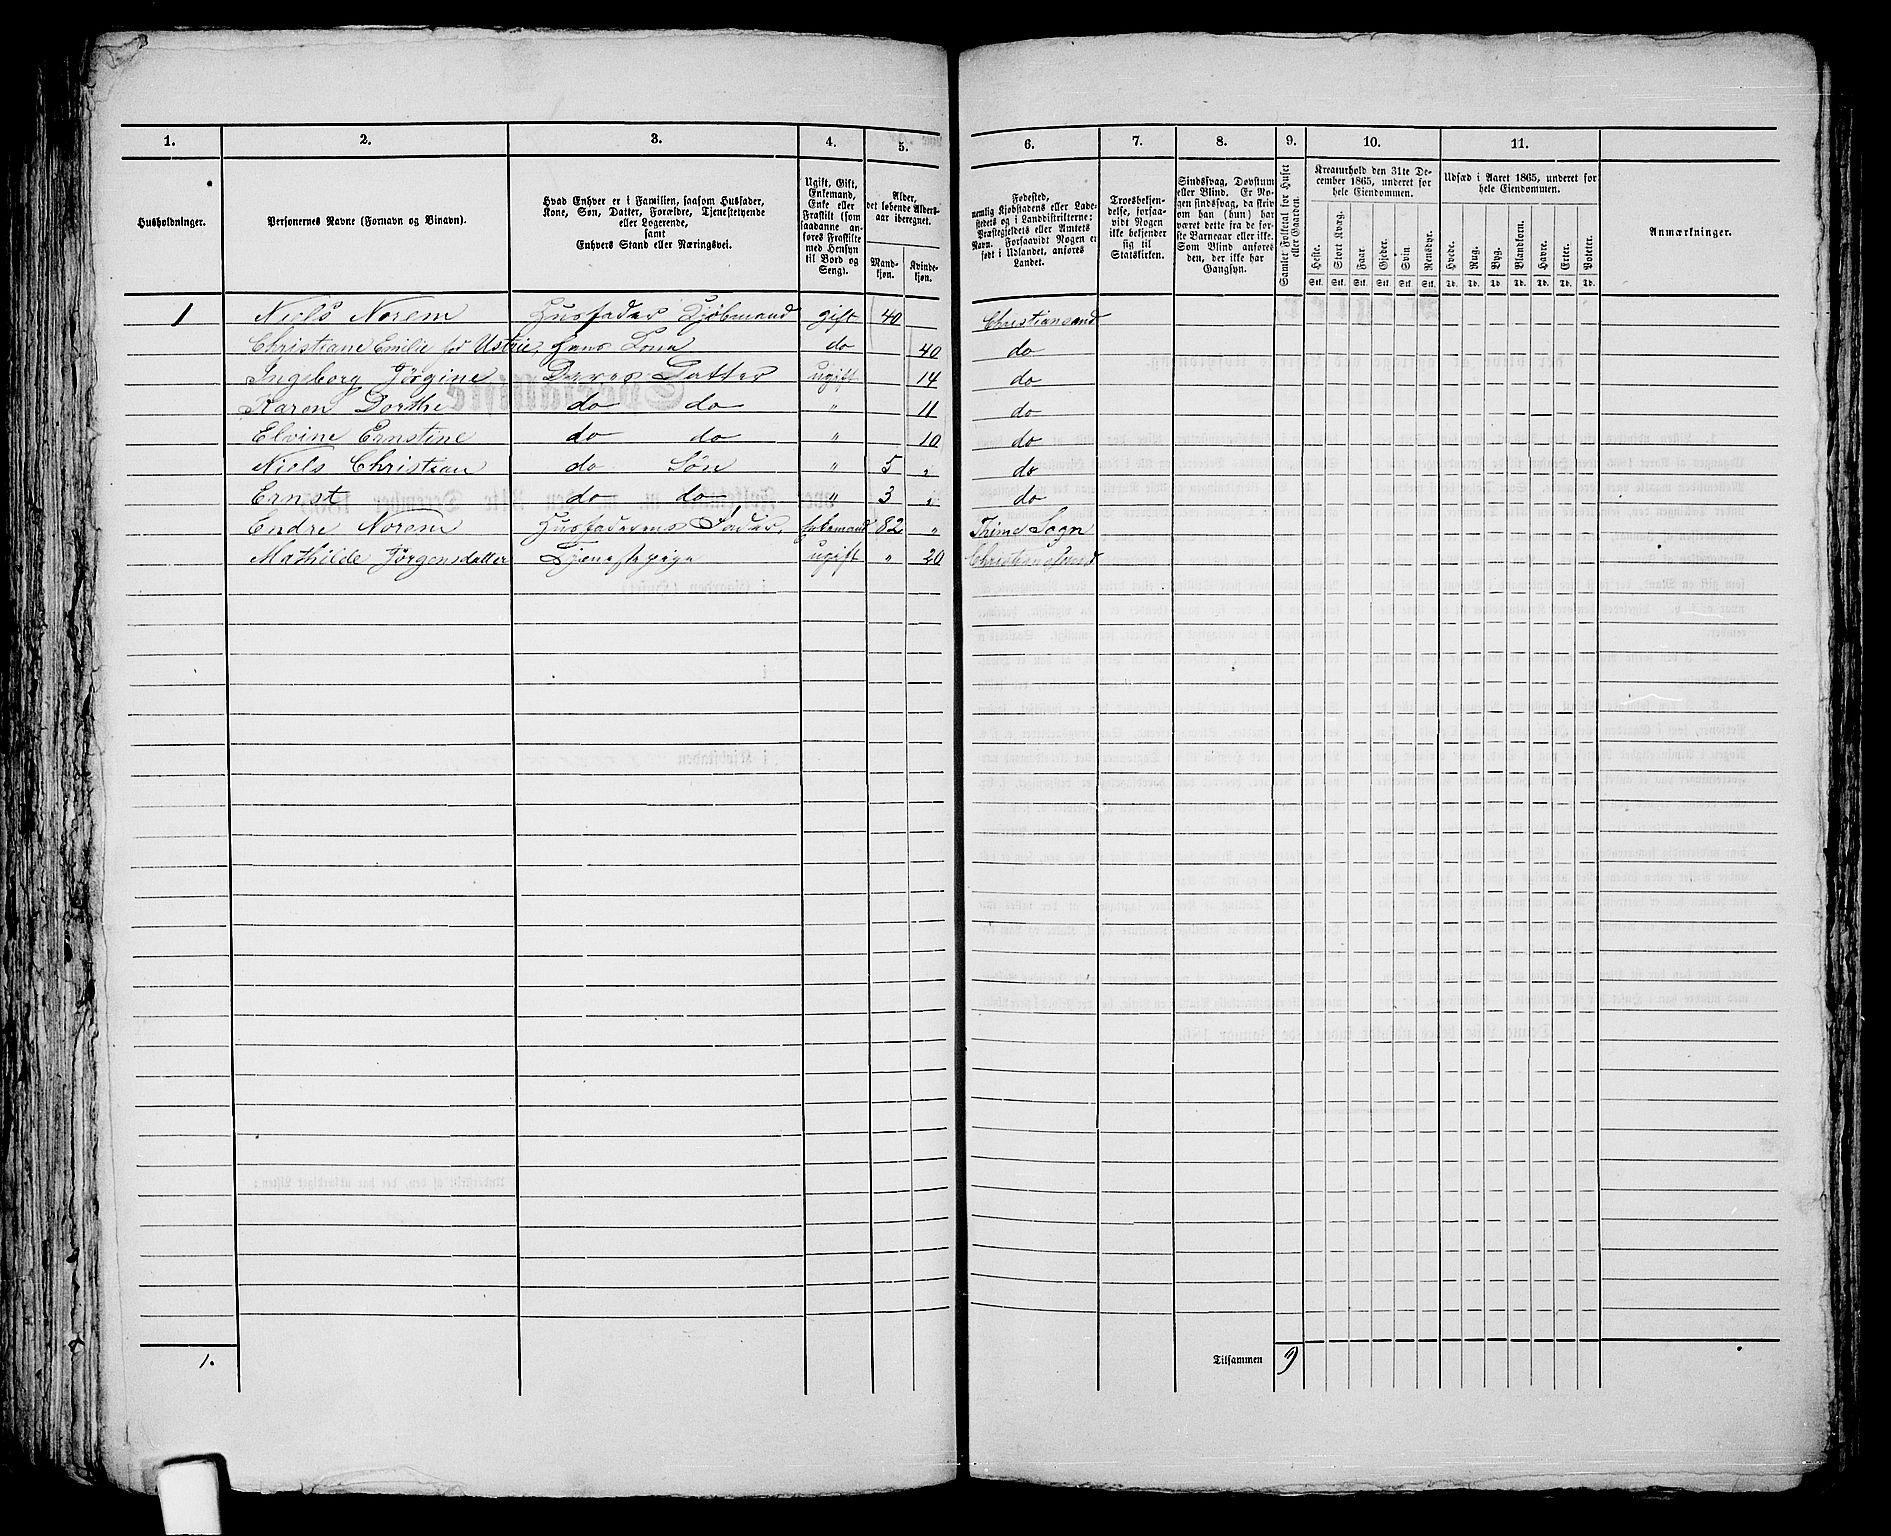 1. 2. 3. 4. 5. 6. 7. 8. 9. 10. 11.
Husholdninger.
Personernes Navne (Fornavn og Binavn).
Hvad Enhver er i Familien, saasom Husfader,
Kone, Søn, Datter, Forældre, Tjenestetyende
eller Logerende,
samt
Enhvers Stand eller Næringsvei.
Ugift, Gift,
Enkemand,
Enke eller
Fraskilt (som
saadanne an-
føres Fraskilte
med Hensyn
til Bord og
Seng).
Alder,
det løbende Alders-
aar iberegnet.
Mand-
kjøn.
Kvinde-
kjøn.
Fødested,
nemlig Kjøbstadens eller Lade-
stedets og i Landdistrikterne:
Præstegjeldets eller Amtets
Navn. Forsaavidt Nogen er
født i Udlandet, anføres
Landet.
Troesbekjen-
delse, forsaa-
vidt Nogen
ikke bekjender
sig til
Statskirken.
Sindssvag, Døvstum
eller Blind. Er No-
gen sindssvag, da skriv
om han (hun) har
været dette fra de før-
ste Barneaar eller ikke.
Som Blind anføres
den, der ikke har
Gangsyn.
Samlet Folketal for Huset
eller Gaarden.
Kreaturhold den 31te De-
cember 1865, underet for
hele Eiendommen.
Heste. Stort Kvæg. Faar. Gjeder. Svin. Rensdyr.
Stk. Stk. Stk. Stk. Stk. Stk.
Udsæd i Aaret 1865, underet for
hele Eiendommen.
Hvede. Rug. Byg. Blandkorn. Havre. Erter. Poteter.
Td. Td. Td. Td. Td. Td. Td.
Anmærkninger.
1 Niels Norem Husfader Kjøbmand gift 40 Christiansand
Christiane Emilie fød Ustrie, hans Kone do 40 do
Ingeborg Jørgine Deres Datter ugift 14 do
Karen Dorthe do do " 11 do
Elvine Ernstine do do " 10 do
Niels Christian do Søn " 5 " do
Ernst do do " 3 " do
Endre Norem Husfaderens Fader, Enkemand 82 " Thime Sogn
Mathilde Jørgensdatter Tjenestepige ugift " 20 Christiansand
1.
Tilsammen 9